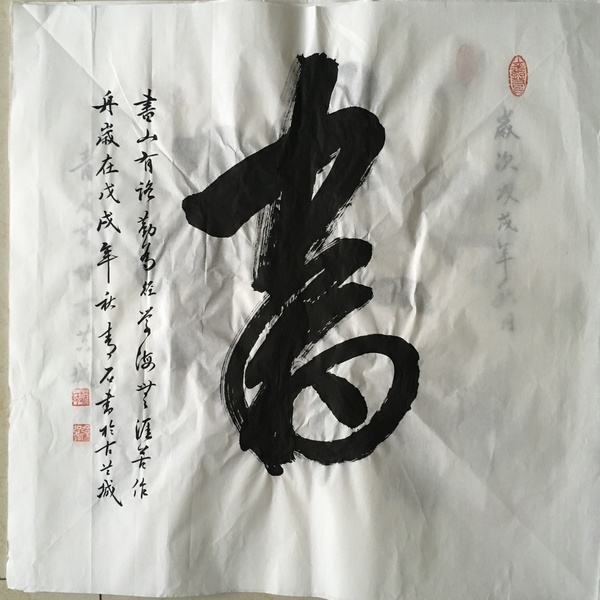 書
書山有路勤為徑學海無涯苦作
舟歲在戊戌年秋青石書於古莒城
歲次戊戌年秋月